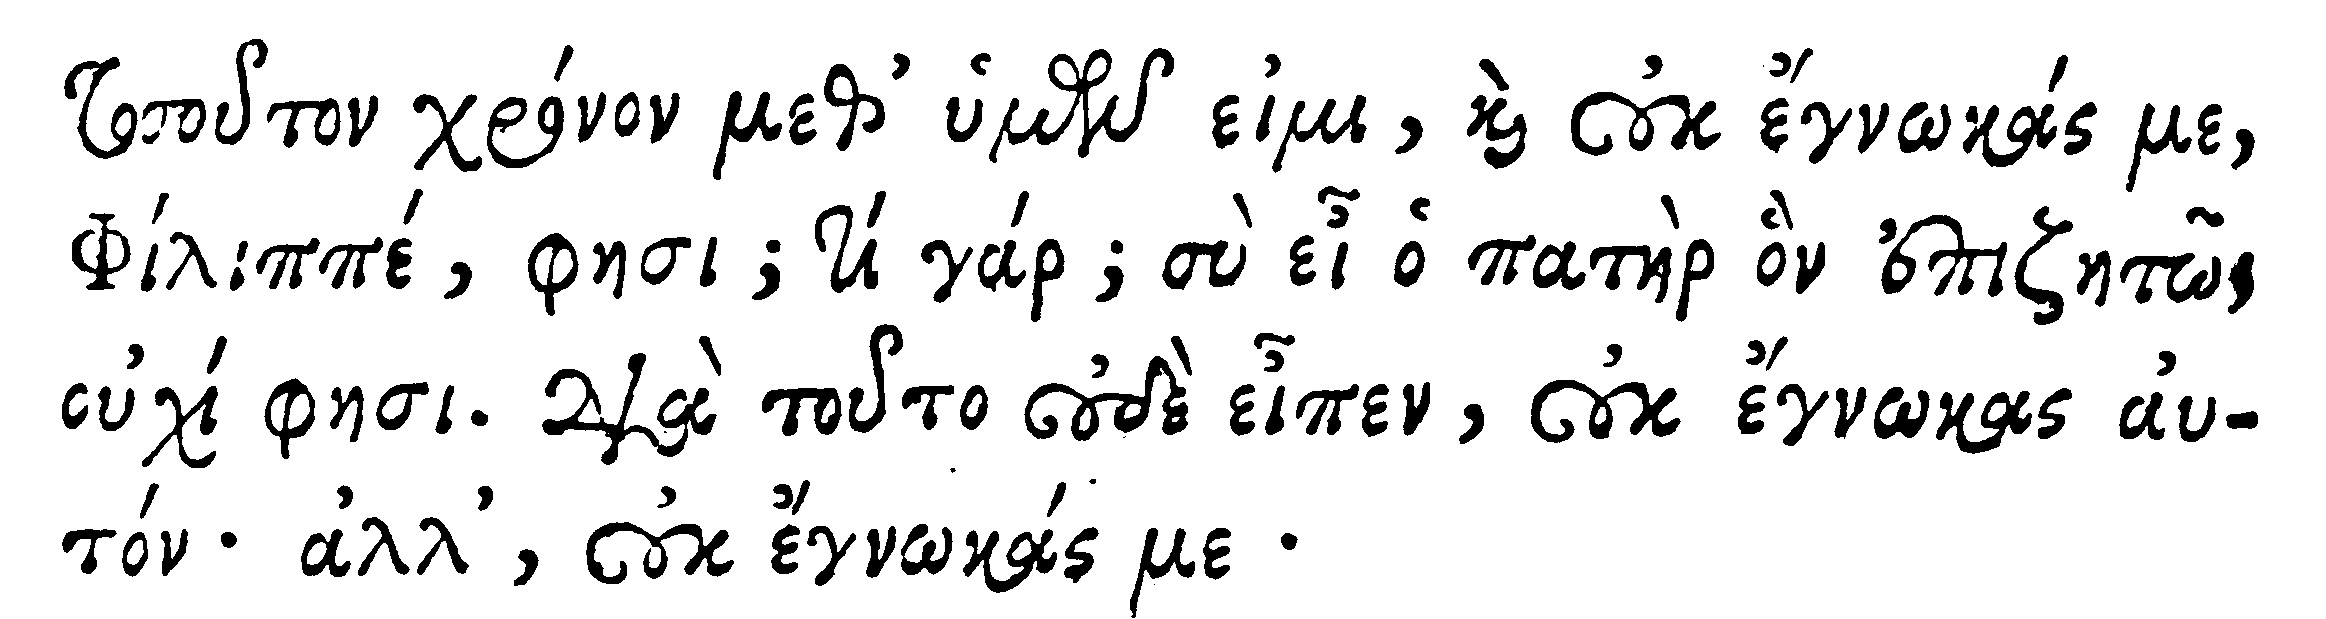 Τοσοῦτον χρόνον μεθ’ ὑμῶν εἰμι, καὶ οὐκ ἔγνωκάς με,
Φίλιππέ, φησι; τί γάρ; σὺ εἶ ὁ πατὴρ ὃν ἐπιζητῶ,
οὐχί φησι. Διὰ τοῦτο οὐδὲ εἶπεν, οὐκ ἔγνωκας αὐ-
τόν· ἀλλ’, οὐκ ἔγνωκάς με.